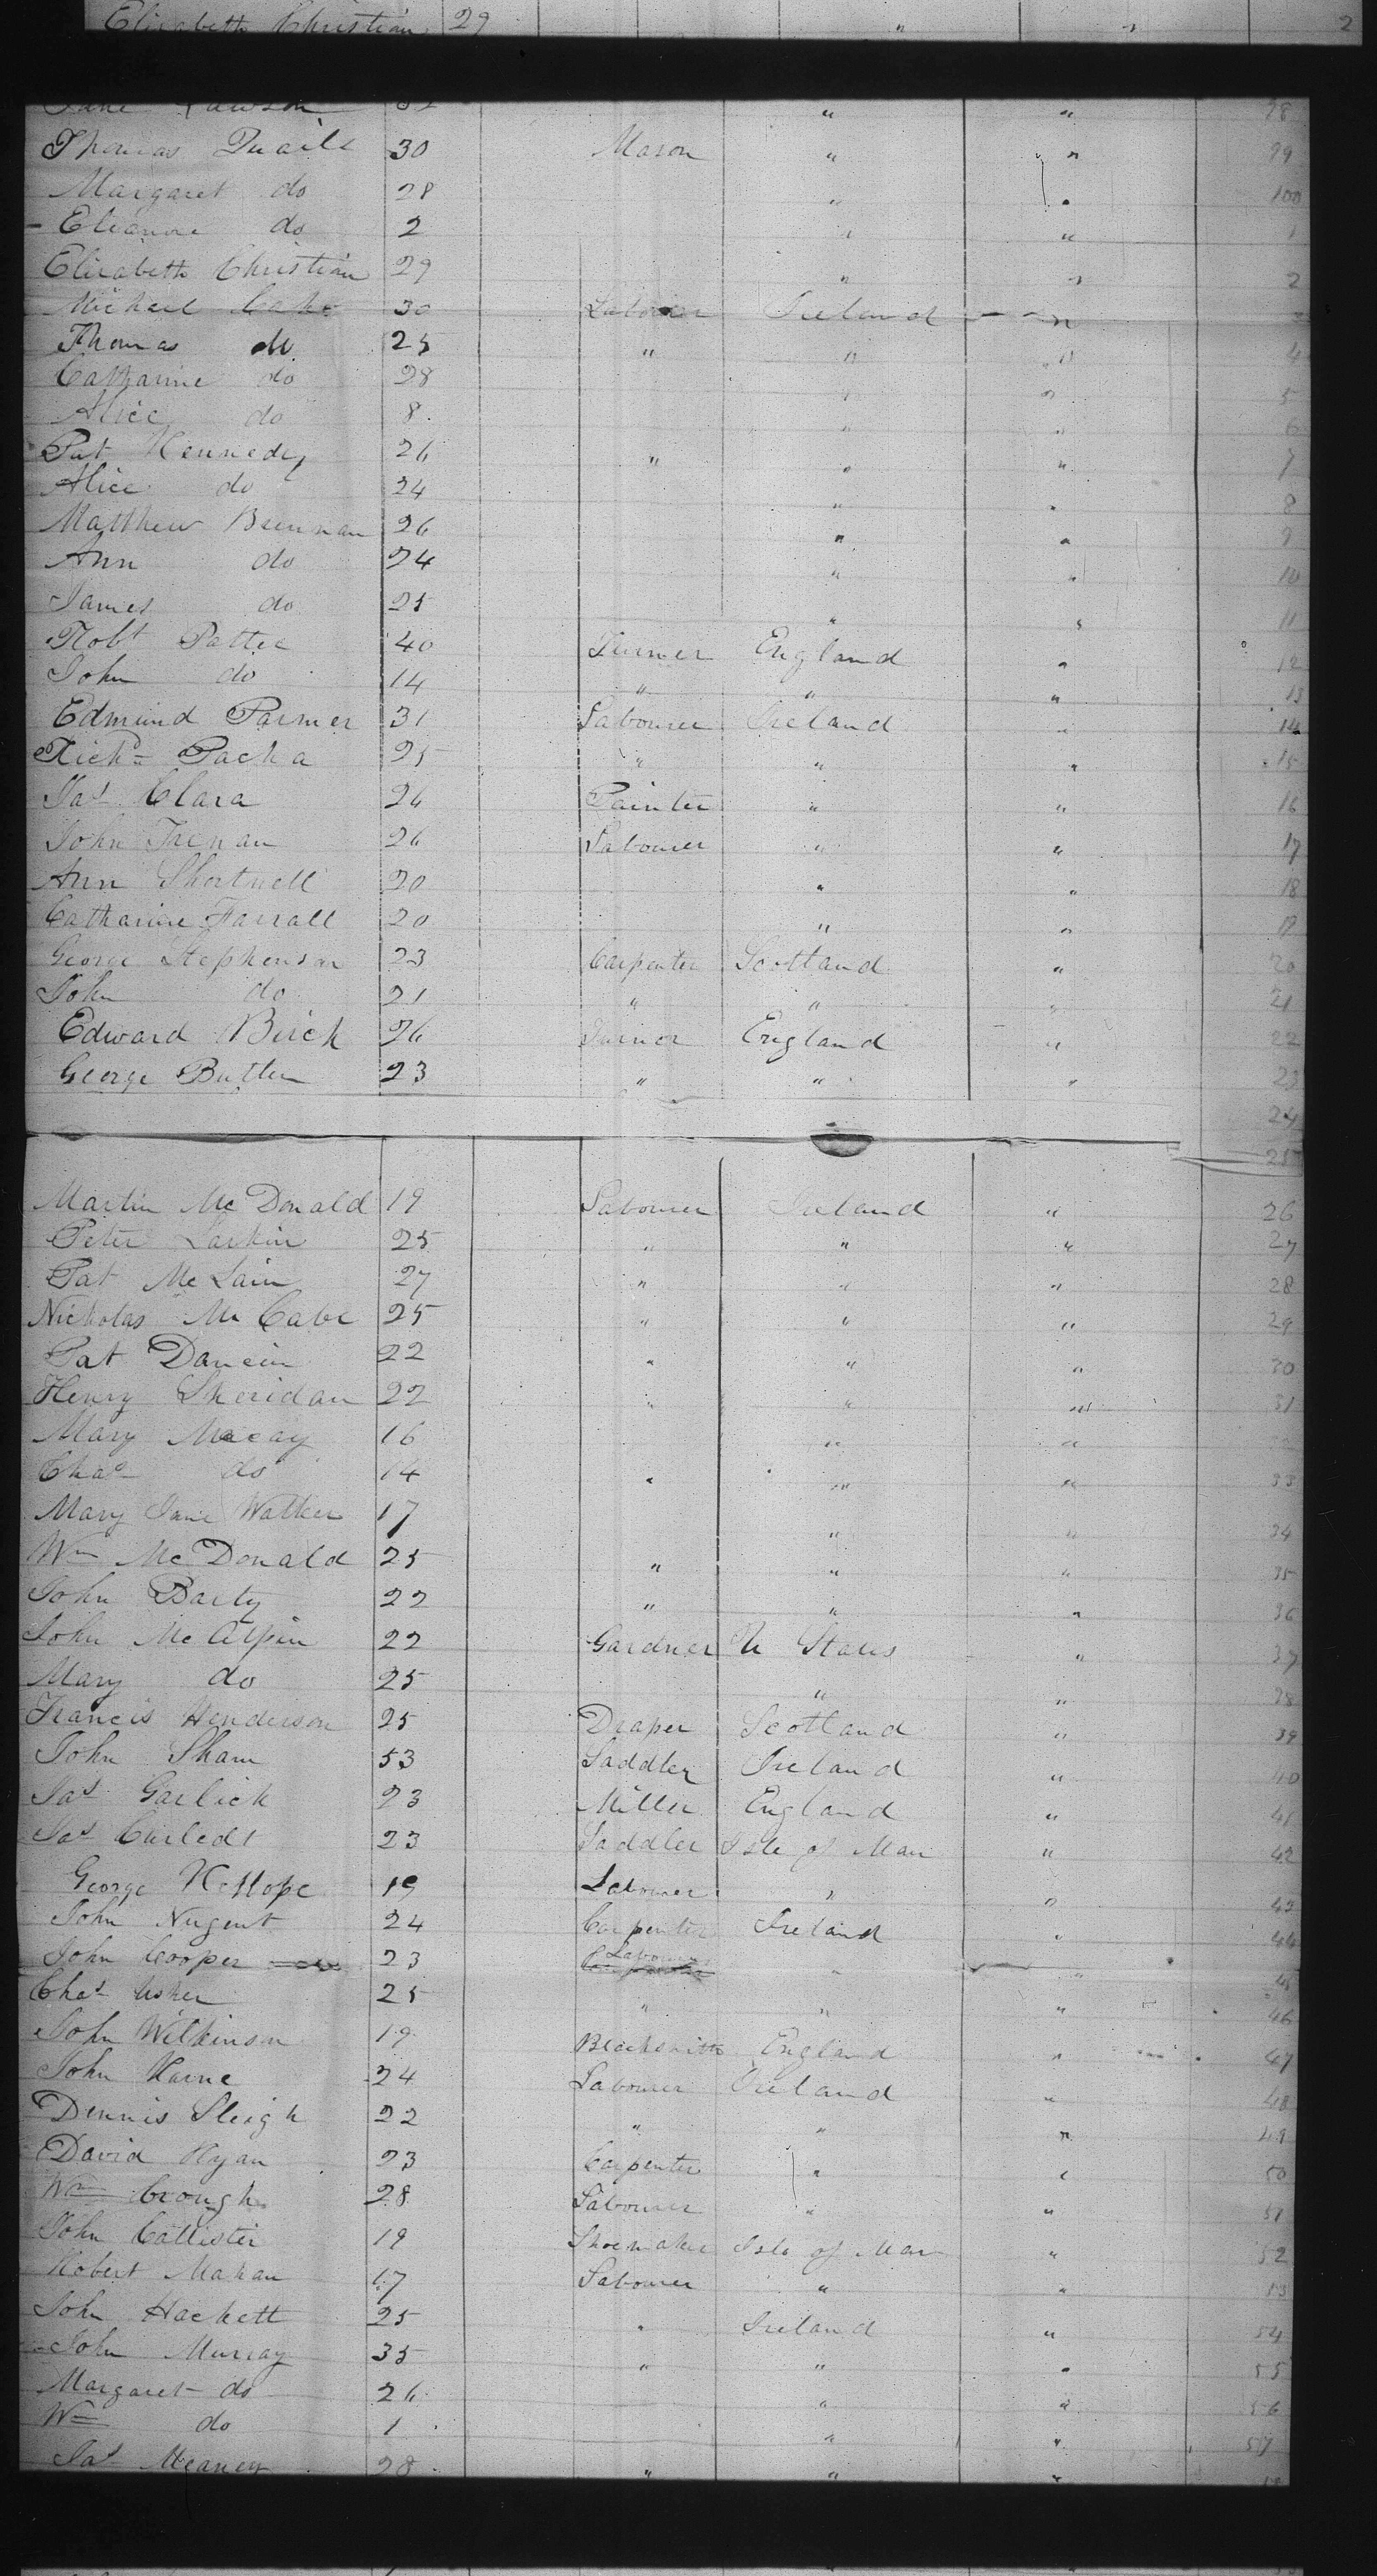 Elizabeth Christian 29 " " 2
Jane Lawson " " 98
Thomas Quaile 30 Mason " " 99
Margaret do 28 " " 100
Eleanore do 2 " " 1
Elizabeth Christian 29 " " 2
Michael 30 Labourer Ireland "
Thomas do 25 " " " 4
Catharine do 28 " " 5
Alice do 8 " " 6
Pat Kennedy 26 " " " 7
Alice do 24 " " 8
Matthew Brennan 26 " " 9
Ann do 24 " " 10
James do 25 " " 11
Robt Pattee 40 England " 12
John do 14 " " " 13
Edmund Parmer 31 Labourer Ireland " 14
Richd Packa 25 " " " 15
Jas Clara 26 Painter " " 16
John Trenan 26 Labourer " " 17
Ann Shortnell 20 " " 18
Catharine Farrall 20 " " 19
George Stephenson 23 Carpenter Scotland " 20
John do 21 " " " 21
Edward Birch 26 England " 22
George Butler 23 " " " 23
24
25
Martin McDonald 19 Labourer Ireland " 26
Peter Larkin 25 " " " 27
Pat McLain 27 " " " 28
Nicholas McCabe 25 " " " 29
Pat Dancin 22 " " " 30
Henry Sheridan 22 " " " 31
Mary Macay 16 " " 32
Chas do 14 " " " 33
Mary Jane Walker 17 " " 34
Wm McDonald 25 " " " 35
John Barty 22 " " " 36
John McAlpin 22 Gardner U States " 37
Mary do 25 " " 38
Francis Henderson 25 Draper Scotland " 39
John Sham 53 Saddler Ireland " 40
Jas Garlick 23 Miller England " 41
Jas 23 Saddler Isle of Man " 42
George 19 Labourer " " 43
John Nugent 24 Carpenter Ireland " 44
John Cooper 23 Labourer " " 45
Chas Usher 25 " " " 46
John Wilkinson 19 Blacksmith England " 47
John Karne 24 Labourer Ireland " 48
Dennis Sleigh 22 " " " 49
David Ryan 23 Carpenter " " 50
Wm Crough 28 Labourer " " 51
John Callister 19 Shoemaker Isle of Man " 52
Robert Mahan 17 Labourer " " 53
John Hackett 25 " Ireland " 54
John Murray 35 " " " 55
Margaret do 26 " " 56
Wm do 1 " " 57
Jas Meaney 28 " " "